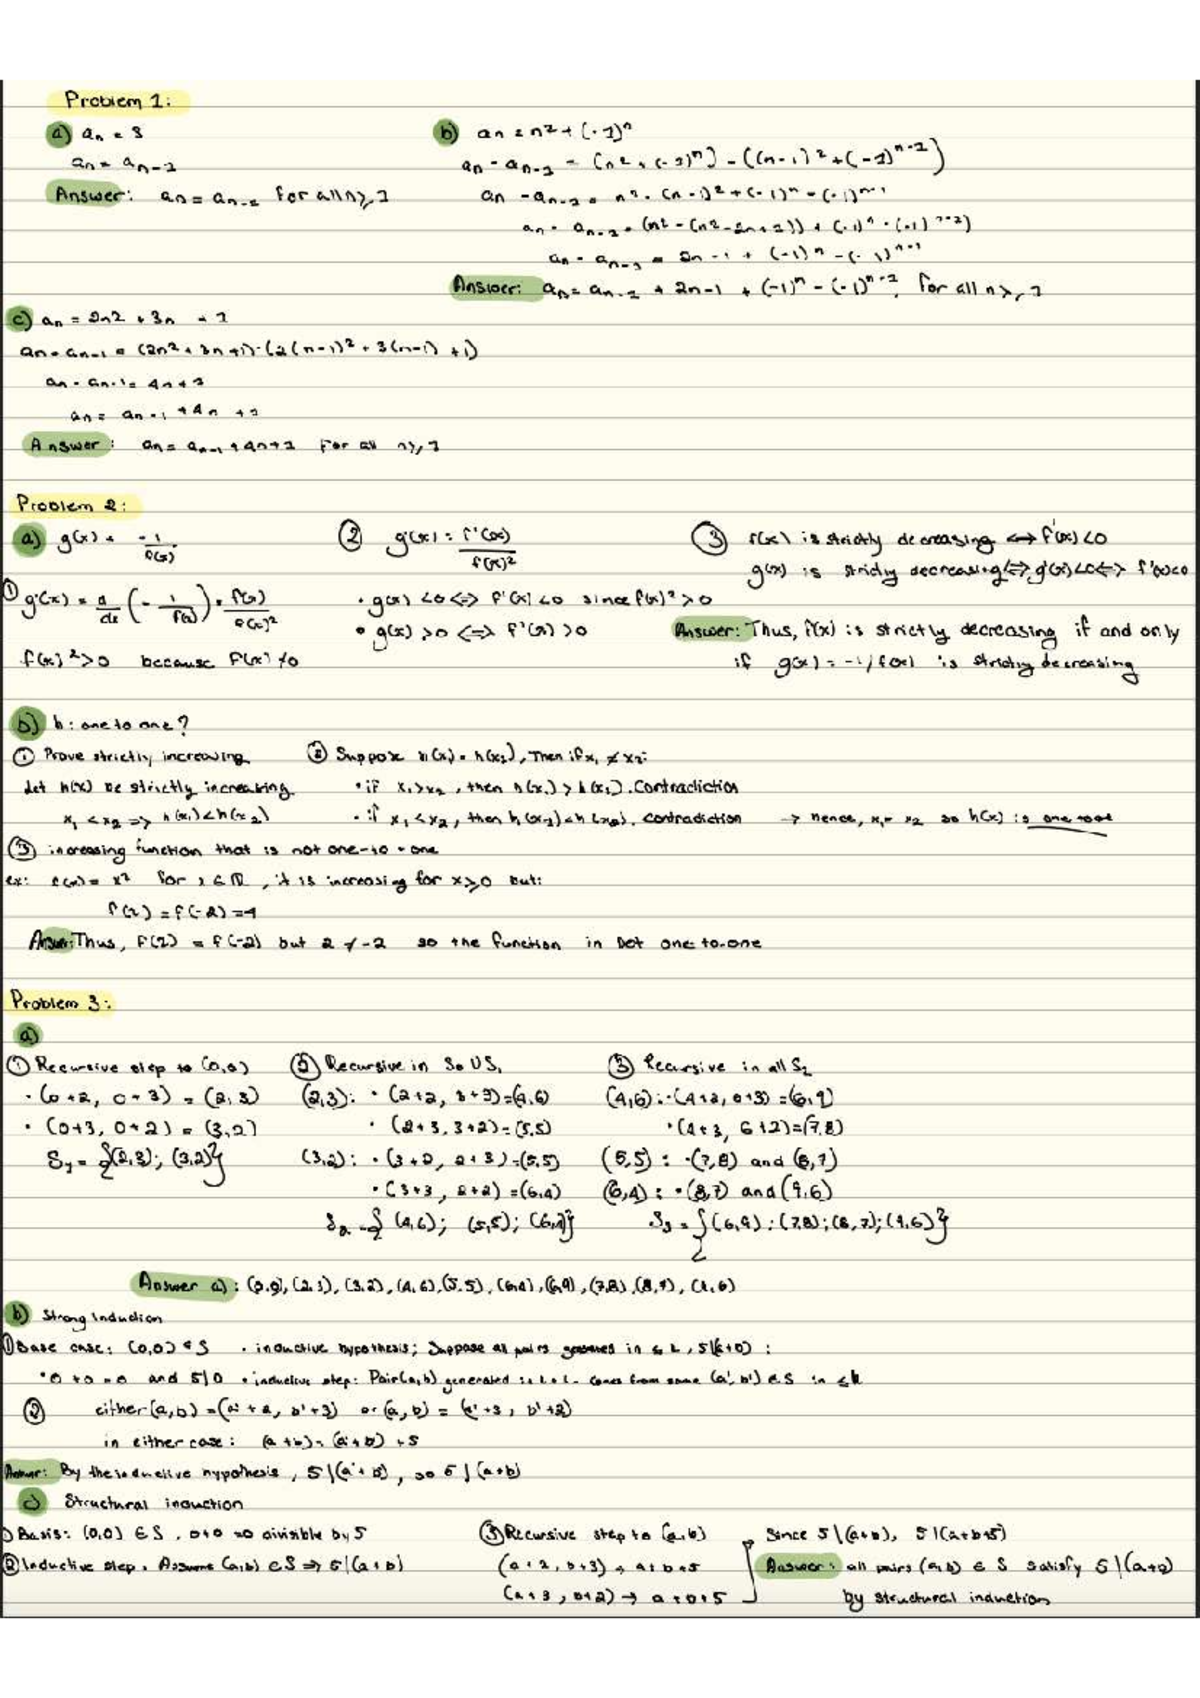 Problem 1:
a) an = 3
an = an-1
Answer: an = an-1 for all n ≥ 1
b) an = n² + (-1)ⁿ
an - an-1 = (n² + (-1)ⁿ) - ((n-1)² + (-1)ⁿ⁻¹)
an - an-1 = n² - (n-1)² + (-1)ⁿ - (-1)ⁿ⁻¹
an - an-1 = (n² - (n² - 2n + 1)) + (-1)ⁿ - (-1)ⁿ⁻¹)
an - an-1 = 2n - 1 + (-1)ⁿ - (-1)ⁿ⁻¹
Answer: an = an-1 + 2n-1 + (-1)ⁿ - (-1)ⁿ⁻¹, for all n ≥ 1
c) an = 2n2 + 3n + 1
an - an-1 = (2n² + 3n + 1) - (2(n-1)² + 3(n-1) + 1)
an - an-1 = 4n + 1
an = an-1 + 4n + 1
Answer: an = an-1 + 4n + 1 For all n ≥ 1
Problem 2:
a) g(x) = -1/f(x)
① g'(x) = d/dx (-1/f(x)) = f'(x)/f(x)²
f(x)² > 0 because f(x) ≠ 0
② g'(x) = f'(x)/f(x)²
• g'(x) < 0 <=> f'(x) < 0 since f(x)² > 0
• g'(x) > 0 <=> f'(x) > 0
③ f(x) is strictly decreasing <=> f'(x) < 0
g(x) is strictly decreasing <=> g'(x) < 0 <=> f'(x) < 0
Answer: Thus, f(x) is strictly decreasing if and only
if g(x) = -1/f(x) is strictly decreasing
b) h: one to one?
① Prove strictly increasing
Let h(x) be strictly increasing
x₁ < x₂ => h(x₁) < h(x₂)
② Suppose h(x₁) = h(x₂), Then if x₁ ≠ x₂:
• if x₁ > x₂, then h(x₁) > h(x₂). Contradiction
• if x₁ < x₂, then h(x₁) < h(x₂). Contradiction → Hence, x₁ = x₂ so h(x) is one to one
③ increasing function that is not one-to-one
ex: f(x) = x² for x ∈ ℝ, it is increasing for x ≥ 0 but:
f(2) = f(-2) = 4
Answer: Thus, f(2) = f(-2) but 2 ≠ -2 so the function in not one-to-one
Problem 3:
a)
① Recursive step to (0,0)
• (0+2, 0+3) = (2,3)
• (0+3, 0+2) = (3,2)
S₁ = {(2,3); (3,2)}
② Recursive in S₀ U S₁
(2,3): • (2+2, 3+3) = (4,6)
• (2+3, 3+2) = (5,5)
(3,2): • (3+2, 2+3) = (5,5)
• (3+3, 2+2) = (6,4)
S₂ = { (4,6); (5,5); (6,4)}
③ Recursive in all S₂
(4,6): • (4+2, 6+3) = (6,9)
• (4+3, 6+2) = (7,8)
(5,5): • (7,8) and (8,7)
(6,4): • (8,7) and (9,6)
S₃ = {(6,9); (7,8); (8,7); (9,6)}
Answer a): (0,0), (2,3), (3,2), (4,6), (5,5), (6,4), (6,9), (7,8), (8,7), (9,6)
b) Strong Induction
① Base case: (0,0) ∈ S • inductive hypothesis; Suppose all pairs generated in ≤ k, 5|(a+b):
• 0+0=0 and 5|0 • inductive step: Pair (a,b) generated in k+1 comes from some (a', b') ∈ S in ≤k
② either (a,b) = (a'+2, b'+3) or (a,b) = (a'+3, b'+2)
in either case: (a+b) = (a'+b') + 5
Answer: By the inductive hypothesis, 5|(a'+b'), so 5|(a+b)
c) Structural induction
① Basis: (0,0) ∈ S, 0+0=0 divisible by 5
② Inductive step. Assume (a,b) ∈ S => 5|(a+b)
③ Recursive step to (a,b)
(a+2, b+3) → a+b+5
(a+3, b+2) → a+b+5
Since 5|(a+b), 5|(a+b+5)
Answer: all pairs (a,b) ∈ S satisfy 5|(a+b)
by structural induction